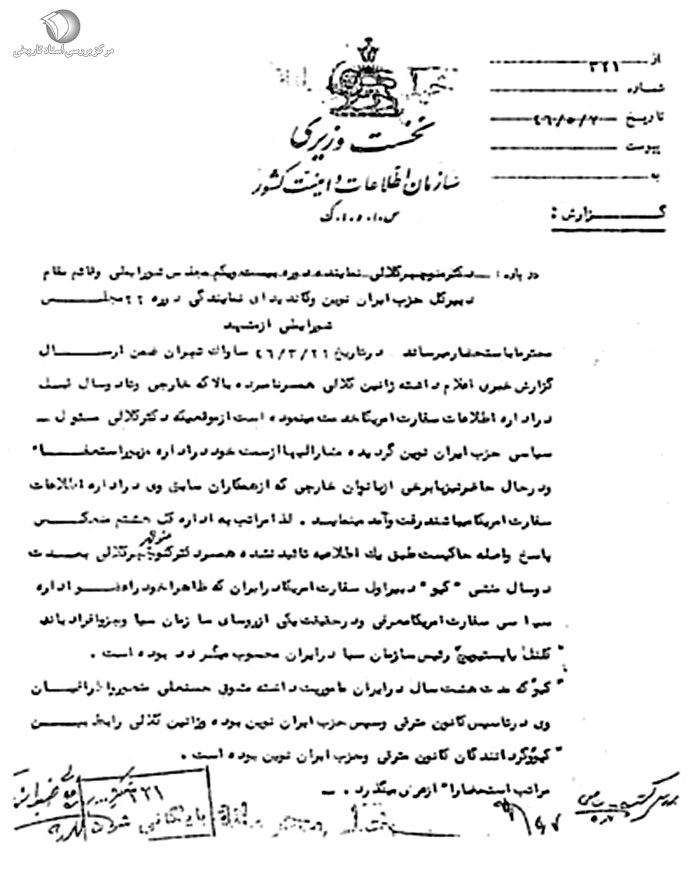 مرکز بررسی اسناد تاریخی
از ۳۲۱
شماره
تاریخ ۴۶/۵/۷
پیوست
به
گزارش :
نخست وزیری
سازمان اطلاعات و امنیت کشور
س.ا.و.ا.ک
درباره : دکتر منوچهر کلالی نماینده دوره بیست ویکم مجلس شورایملی وقائم مقام
دبیرکل حزب ایران نوین وکاندیدای نمایندگی دوره ۲۲ مجلس
شورایملی ازمشهد
محترما باستحضار میرساند درتاریخ ۴۶/۳/۲۱ ساواک تهران ضمن ارسال
گزارش خبری اعلام داشته ژانین کلالی همسرنامبرده بالاکه خارجی وتادوسال قبل
دراداره اطلاعات سفارت امریکاخدمت مینموده است ازموقعیکه دکترکلالی مسئول
سیاسی حزب ایران نوین گردیده مشارالیها ازسمت خود دراداره مزبوراستعفا
ودرحال حاضرنیزبابرخی ازبانوان خارجی که ازهمکاران سابق وی دراداره اطلاعات
سفارت امریکامیباشندرفت وآمد مینماید . لذا مراتب به اداره کل هشتم منعکس
پاسخ واصله حاکیست طبق یك اطلاعیه تائید نشده همسردکترمنوچهرکلالی بمدت
دوسال منشی "کیو" دبیراول سفارت امریکادرایران که ظاهراخودراعضو اداره
سیاسی سفارت امریکامعرفی ودرحقیقت یکی ازروسای سازمان سیا وجزوافرادباند
کلنل یاتسیویچ رئیس سازمان سیا درایران محسوب میگردد بوده است .
"کیو" که مدت هشت سال درایران ماموریت داشته مشوق حسنعلی منصور واطرافیان
وی درتاسیس کانون مترقی وسپس حزب ایران نوین بوده وژانین کلالی رابط بین
"کیو" وگردانندگان کانون مترقی وحزب ایران نوین بوده است .
مراتب استحضارا" ازعرض میگذرد .
۳۲۱
بایگانی شود